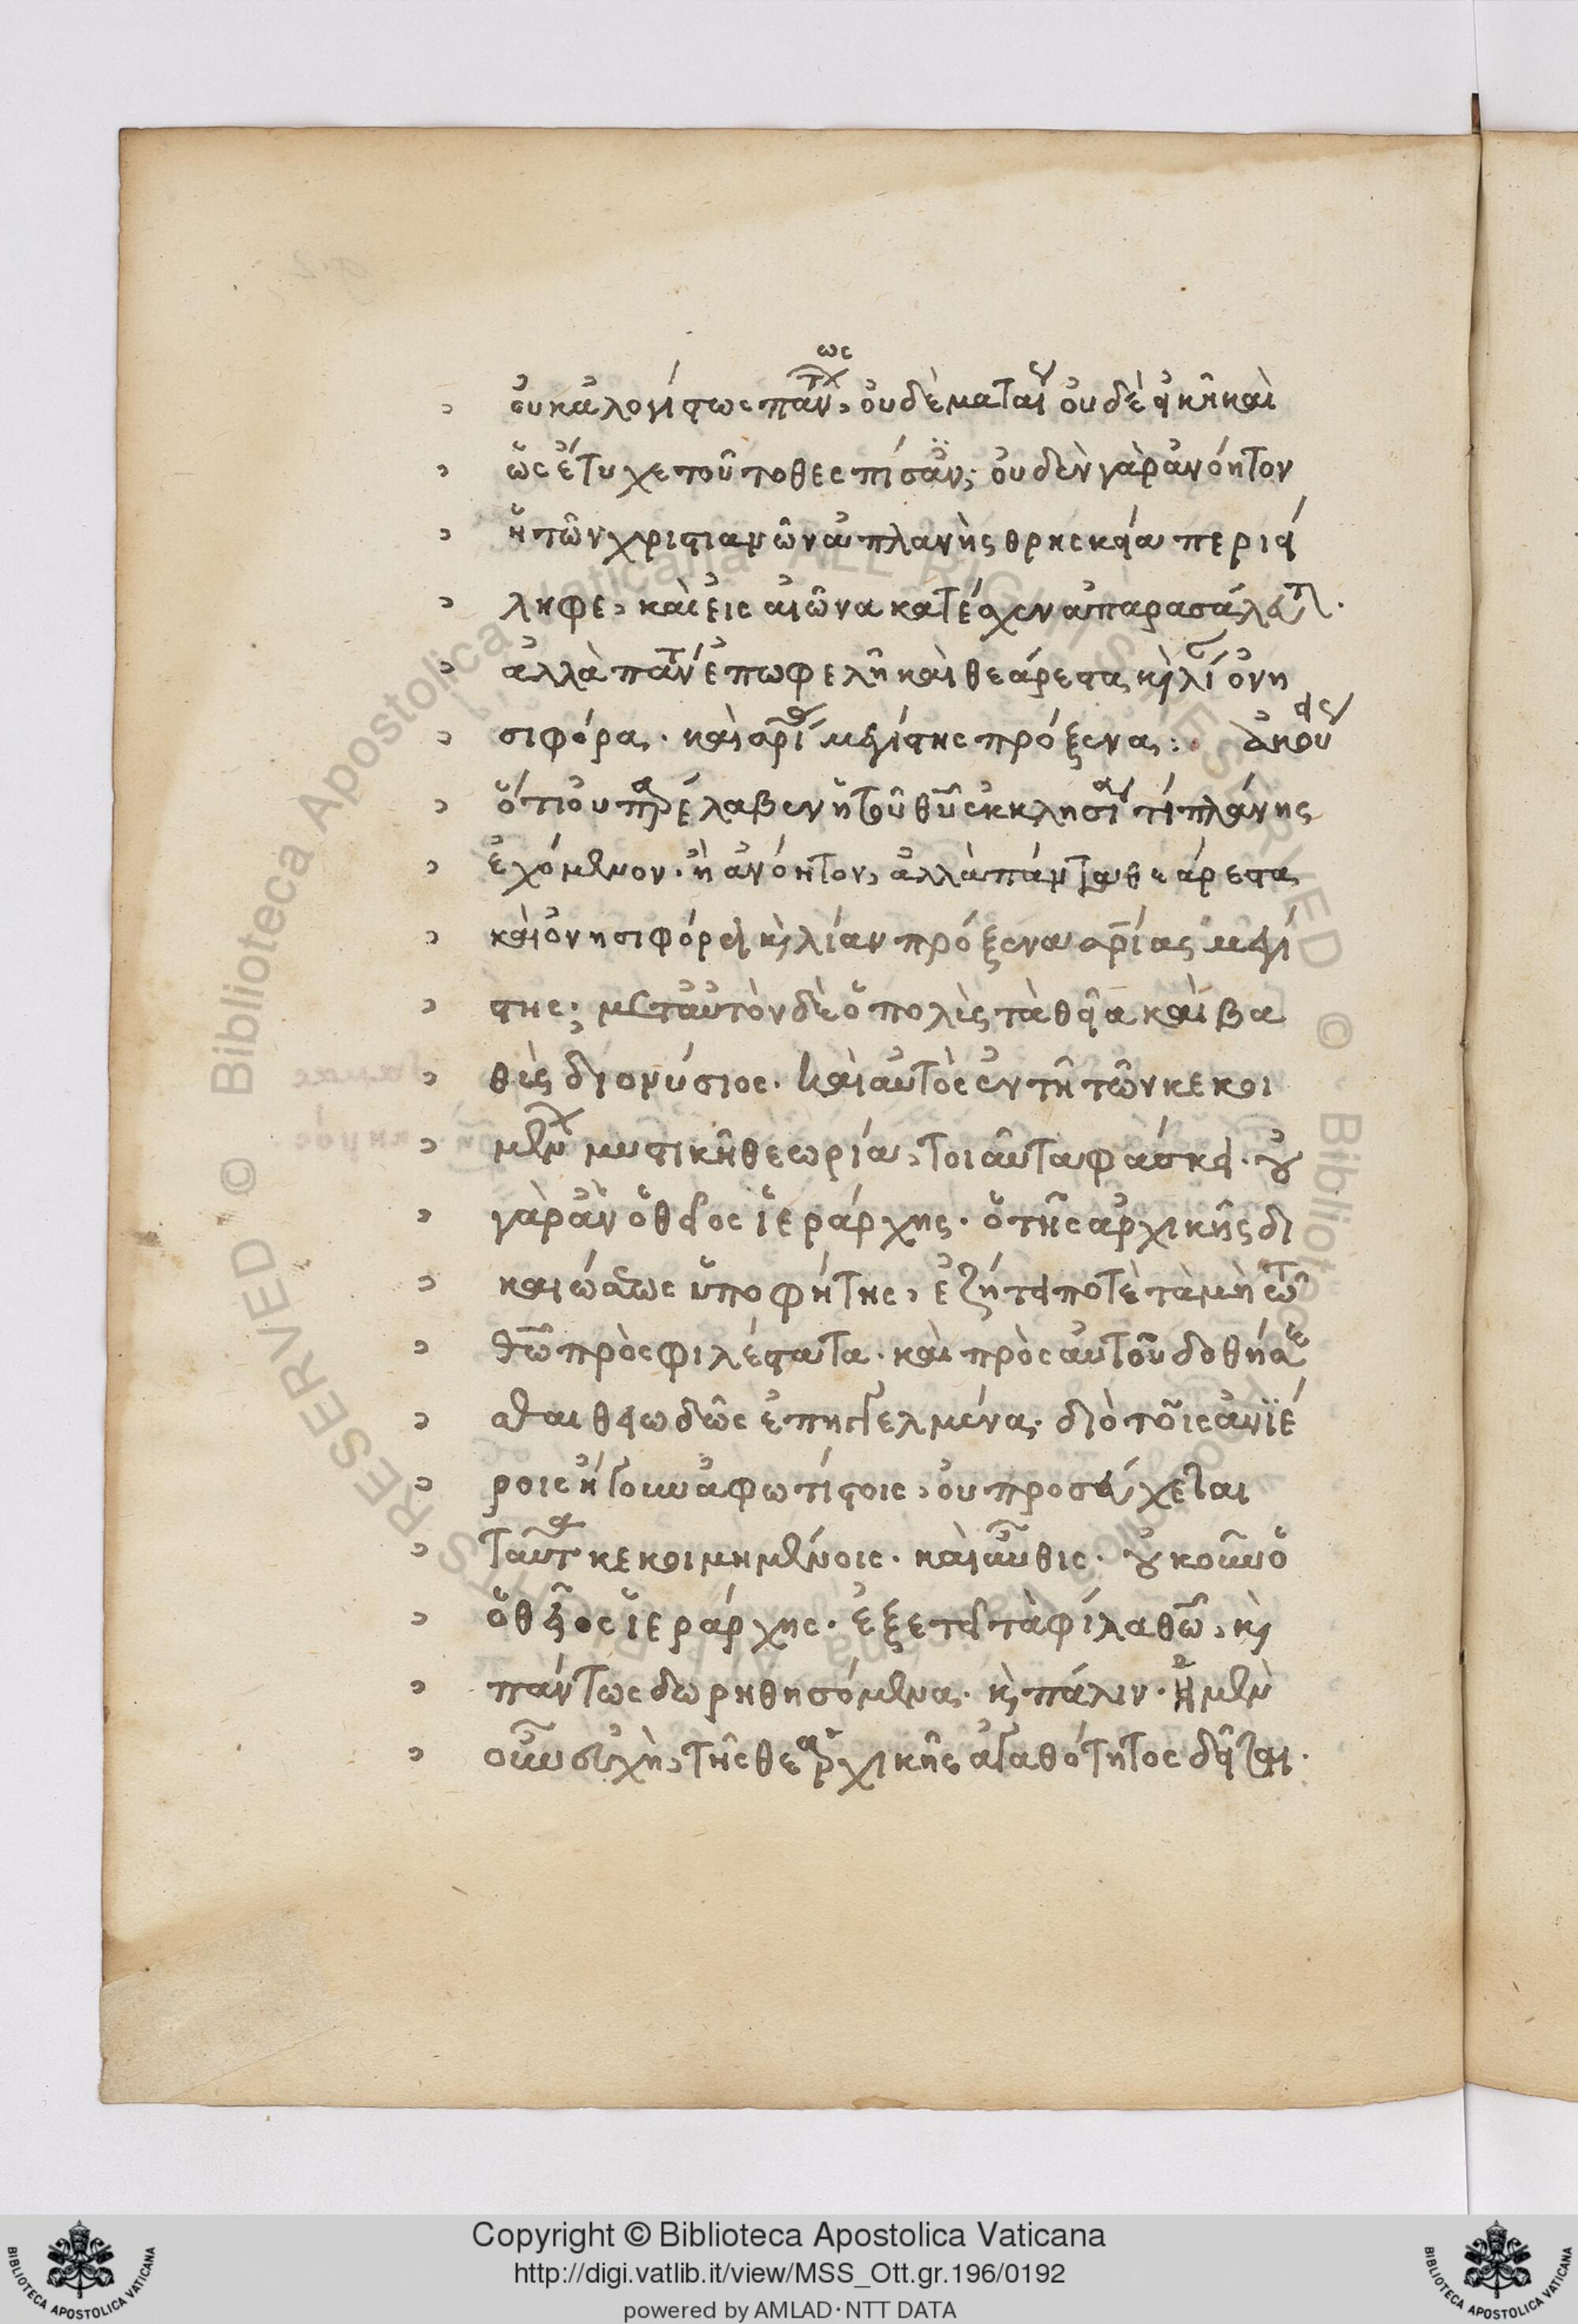 οὐκ ἀλογίστως πάντως, οὐδὲ ματαίως οὐδὲ εἰκῆ καὶ
ὡς ἔτυχε τοῦτο θεσπίσαν· οὐδὲν γὰρ ἀνόητον
ἡ τῶν χριστιανῶν ἀπλανὴς θρησκεία περιεί
ληφε, καὶ εἰς αἰῶνα κατέσχεν ἀπαρασάλευτα.
ἀλλὰ πάντα ἐπωφελῆ καὶ θεάρεστα κὶ λίαν ὀνη
σιφόρα. καὶ σρίας μεγίστης πρόξενα: ἀκούεις
ὅτι οὐ παρέλαβεν ἡ τοῦ θυ ἐκκλησία τι πλάνης
ἐχόμενον. ἢ ἀνόητον, ἀλλὰ πάντα θεάρεστα
καὶ ὀνησιφόρα κὶ λίαν πρόξενα σρίας μεγί
στης· μετ' αὐτὸν δὲ ὁ πολὺς τὰ θεῖα καὶ βα
θὺς διονύσιος. καὶ αὐτὸς ἐν τῆ τῶν κεκοι
μημένων μυστικῆ θεωρία, τοιαῦτα φάσκει. οὐ
γὰρ ἂν ὁ θεῖος ἱεράρχης. ὁ τῆς ἀρχικῆς δι
καιώσεως ὑποφήτης, ἐζήτει ποτὲ τὰ μὴ τῶ
θῶ προσφιλέστατα. καὶ πρὸς αὐτοῦ δοθήσε
σθαι θειωδῶς ἐπηγγελμένα. διὸ τοῖς ἀνϊέ
ροις ἤγουν ἀφωτίστοις, οὐ προσεύχεται
ταῦτα κεκοιμημένοις. καὶ αὖθις. οὐκοῦν ὁ
ὁ θεῖος ἱεράρχης. ἐξετεῖ τὰ φίλα θῶ, κὶ
πάντως δωρηθησόμενα. κὶ πάλιν. ἡ μὲν
οὖν εὐχὴ, τῆς θεαρχικῆς ἀγαθότητος δεῖται.
Copyright © Biblioteca Apostolica Vaticana
http://digi.vatlib.it/view/MSS_Ott.gr.196/0192
powered by AMLAD·NTT DATA
BIBLIOTECA APOSTOLICA VATICANA
BIBLIOTECA APOSTOLICA VATICANA